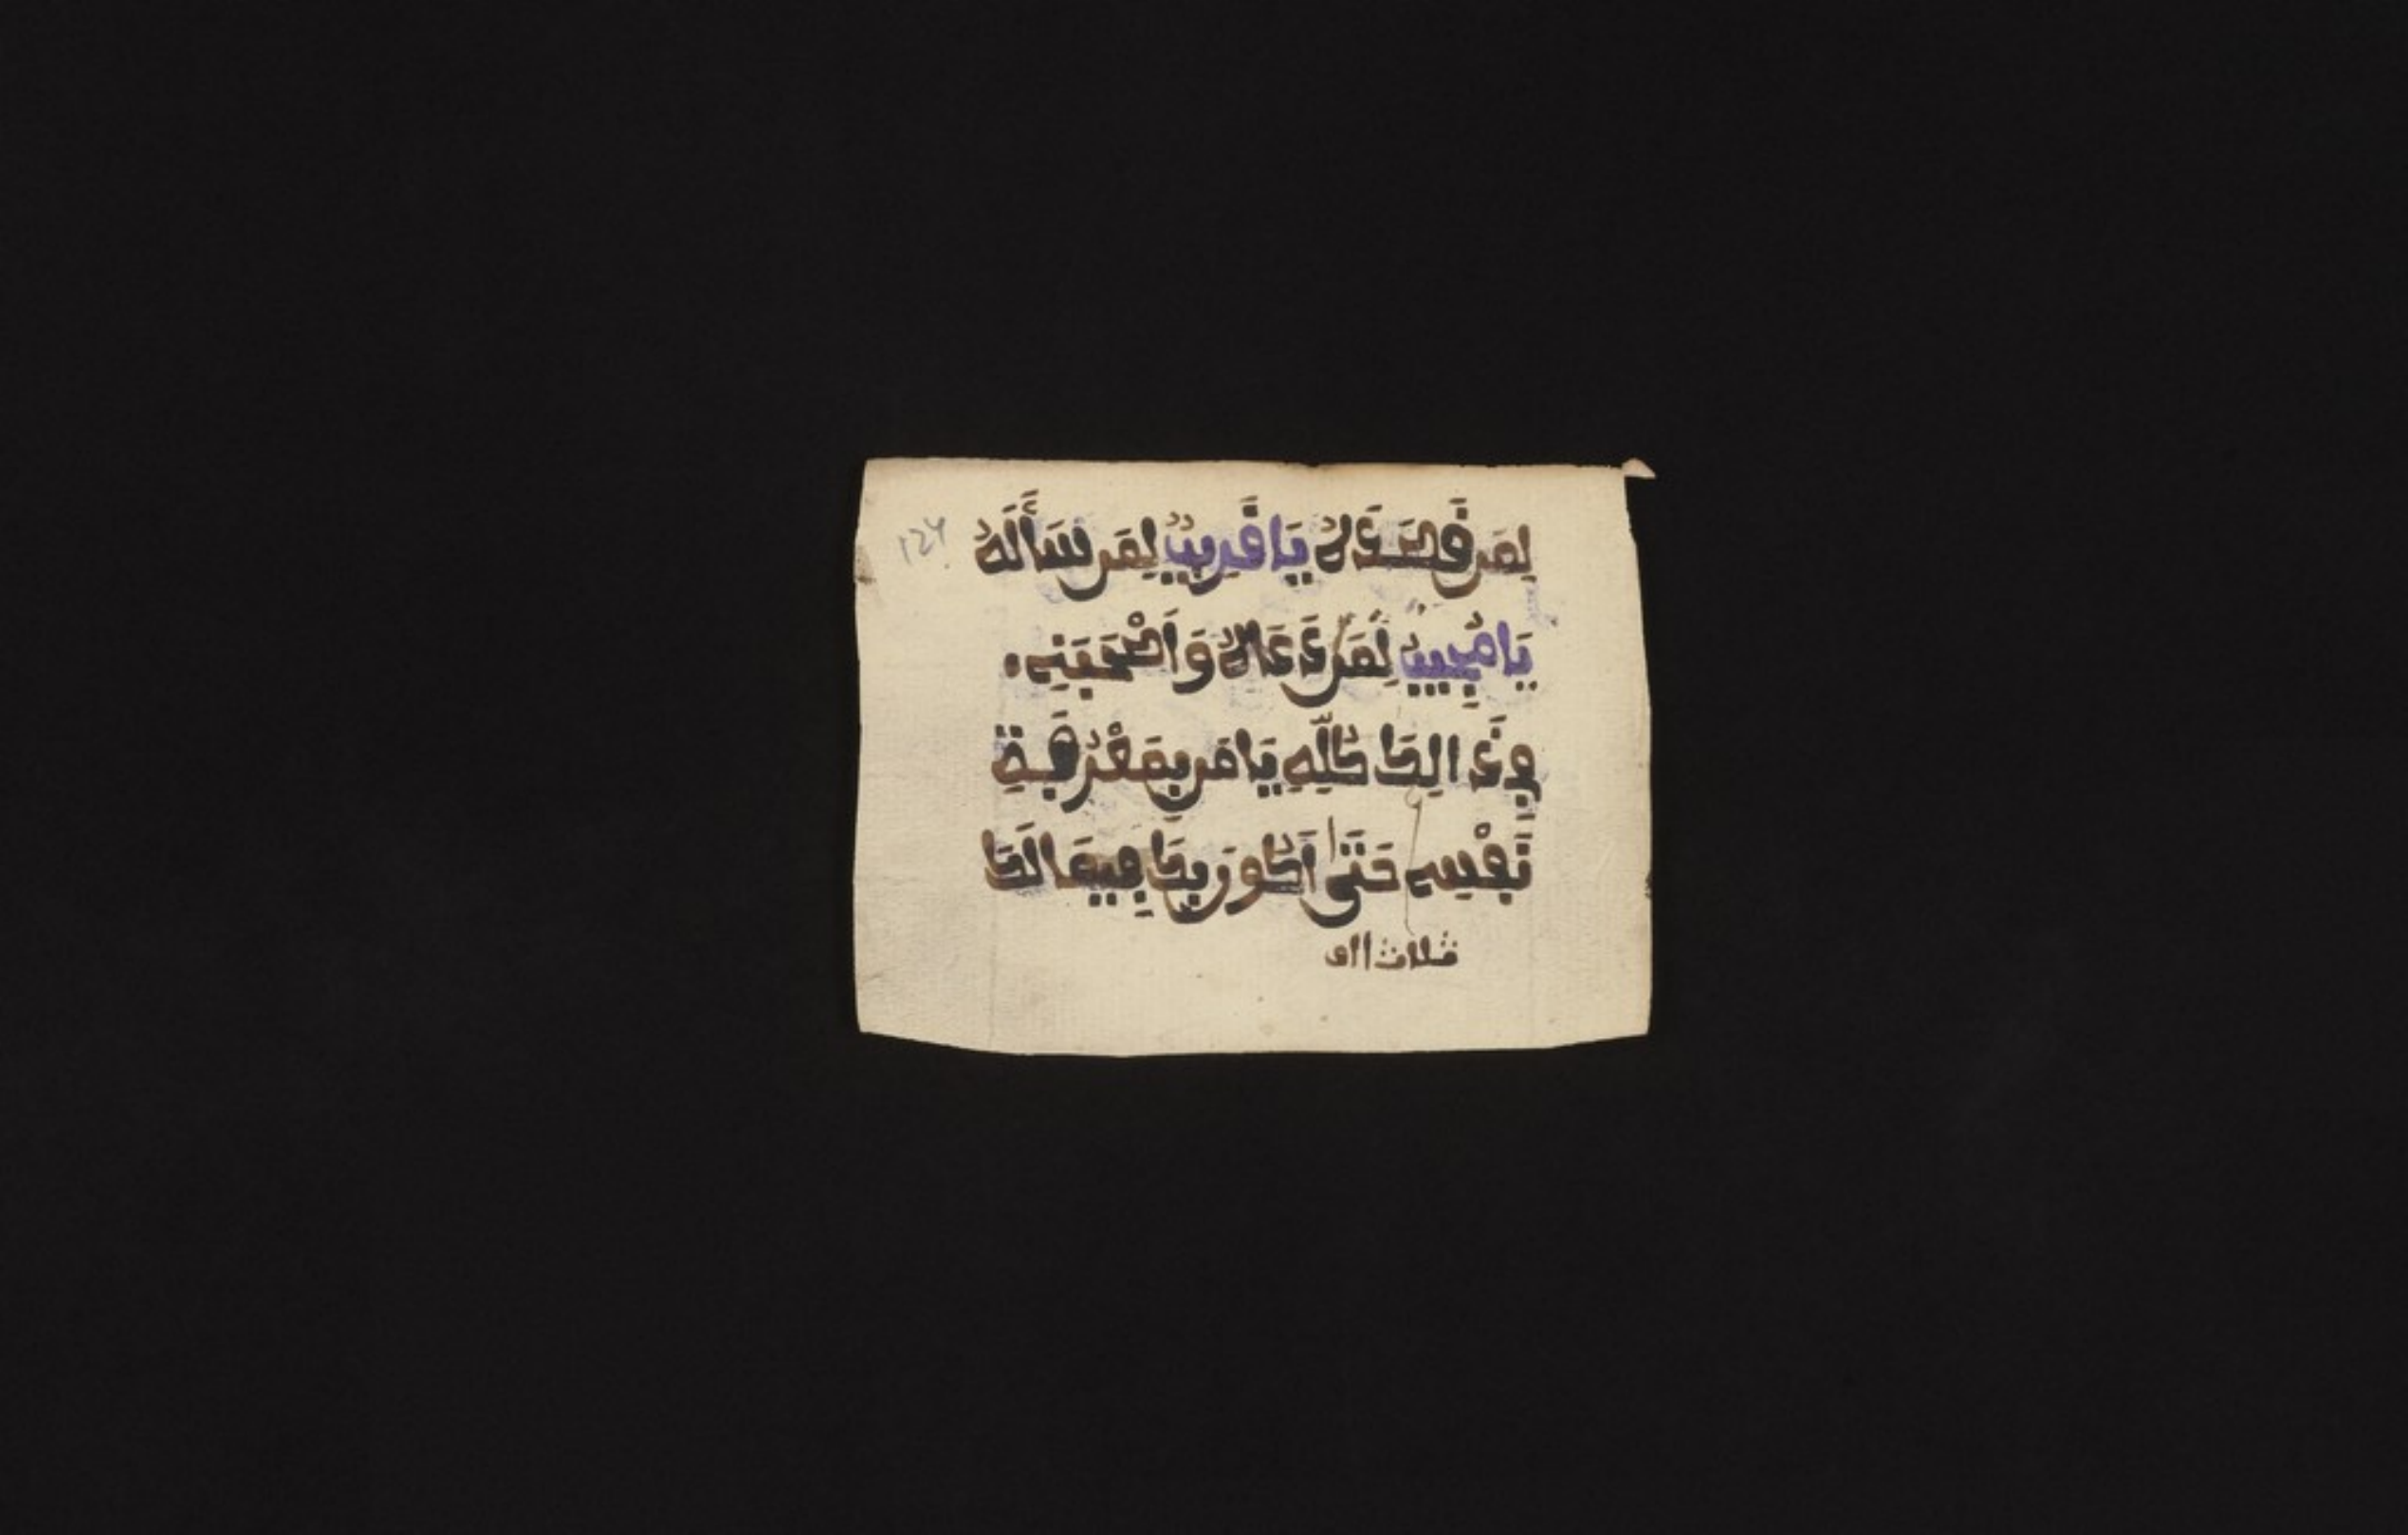 لِمَن قَصَدَهُ يَا قَرِيبٌ لِمَن سَأَلَهُ
يَا مُجِيبُ لِمَن دَعَاهُ وَاَصْحَبَنِي
فِي ذَالِكَ كُلِّهِ يَا مَن بِمَعْرُفَةِ
نَفْسِي حَتَّى أَكُونَ بِكَ فِيمَا لَكَ
ثلاث